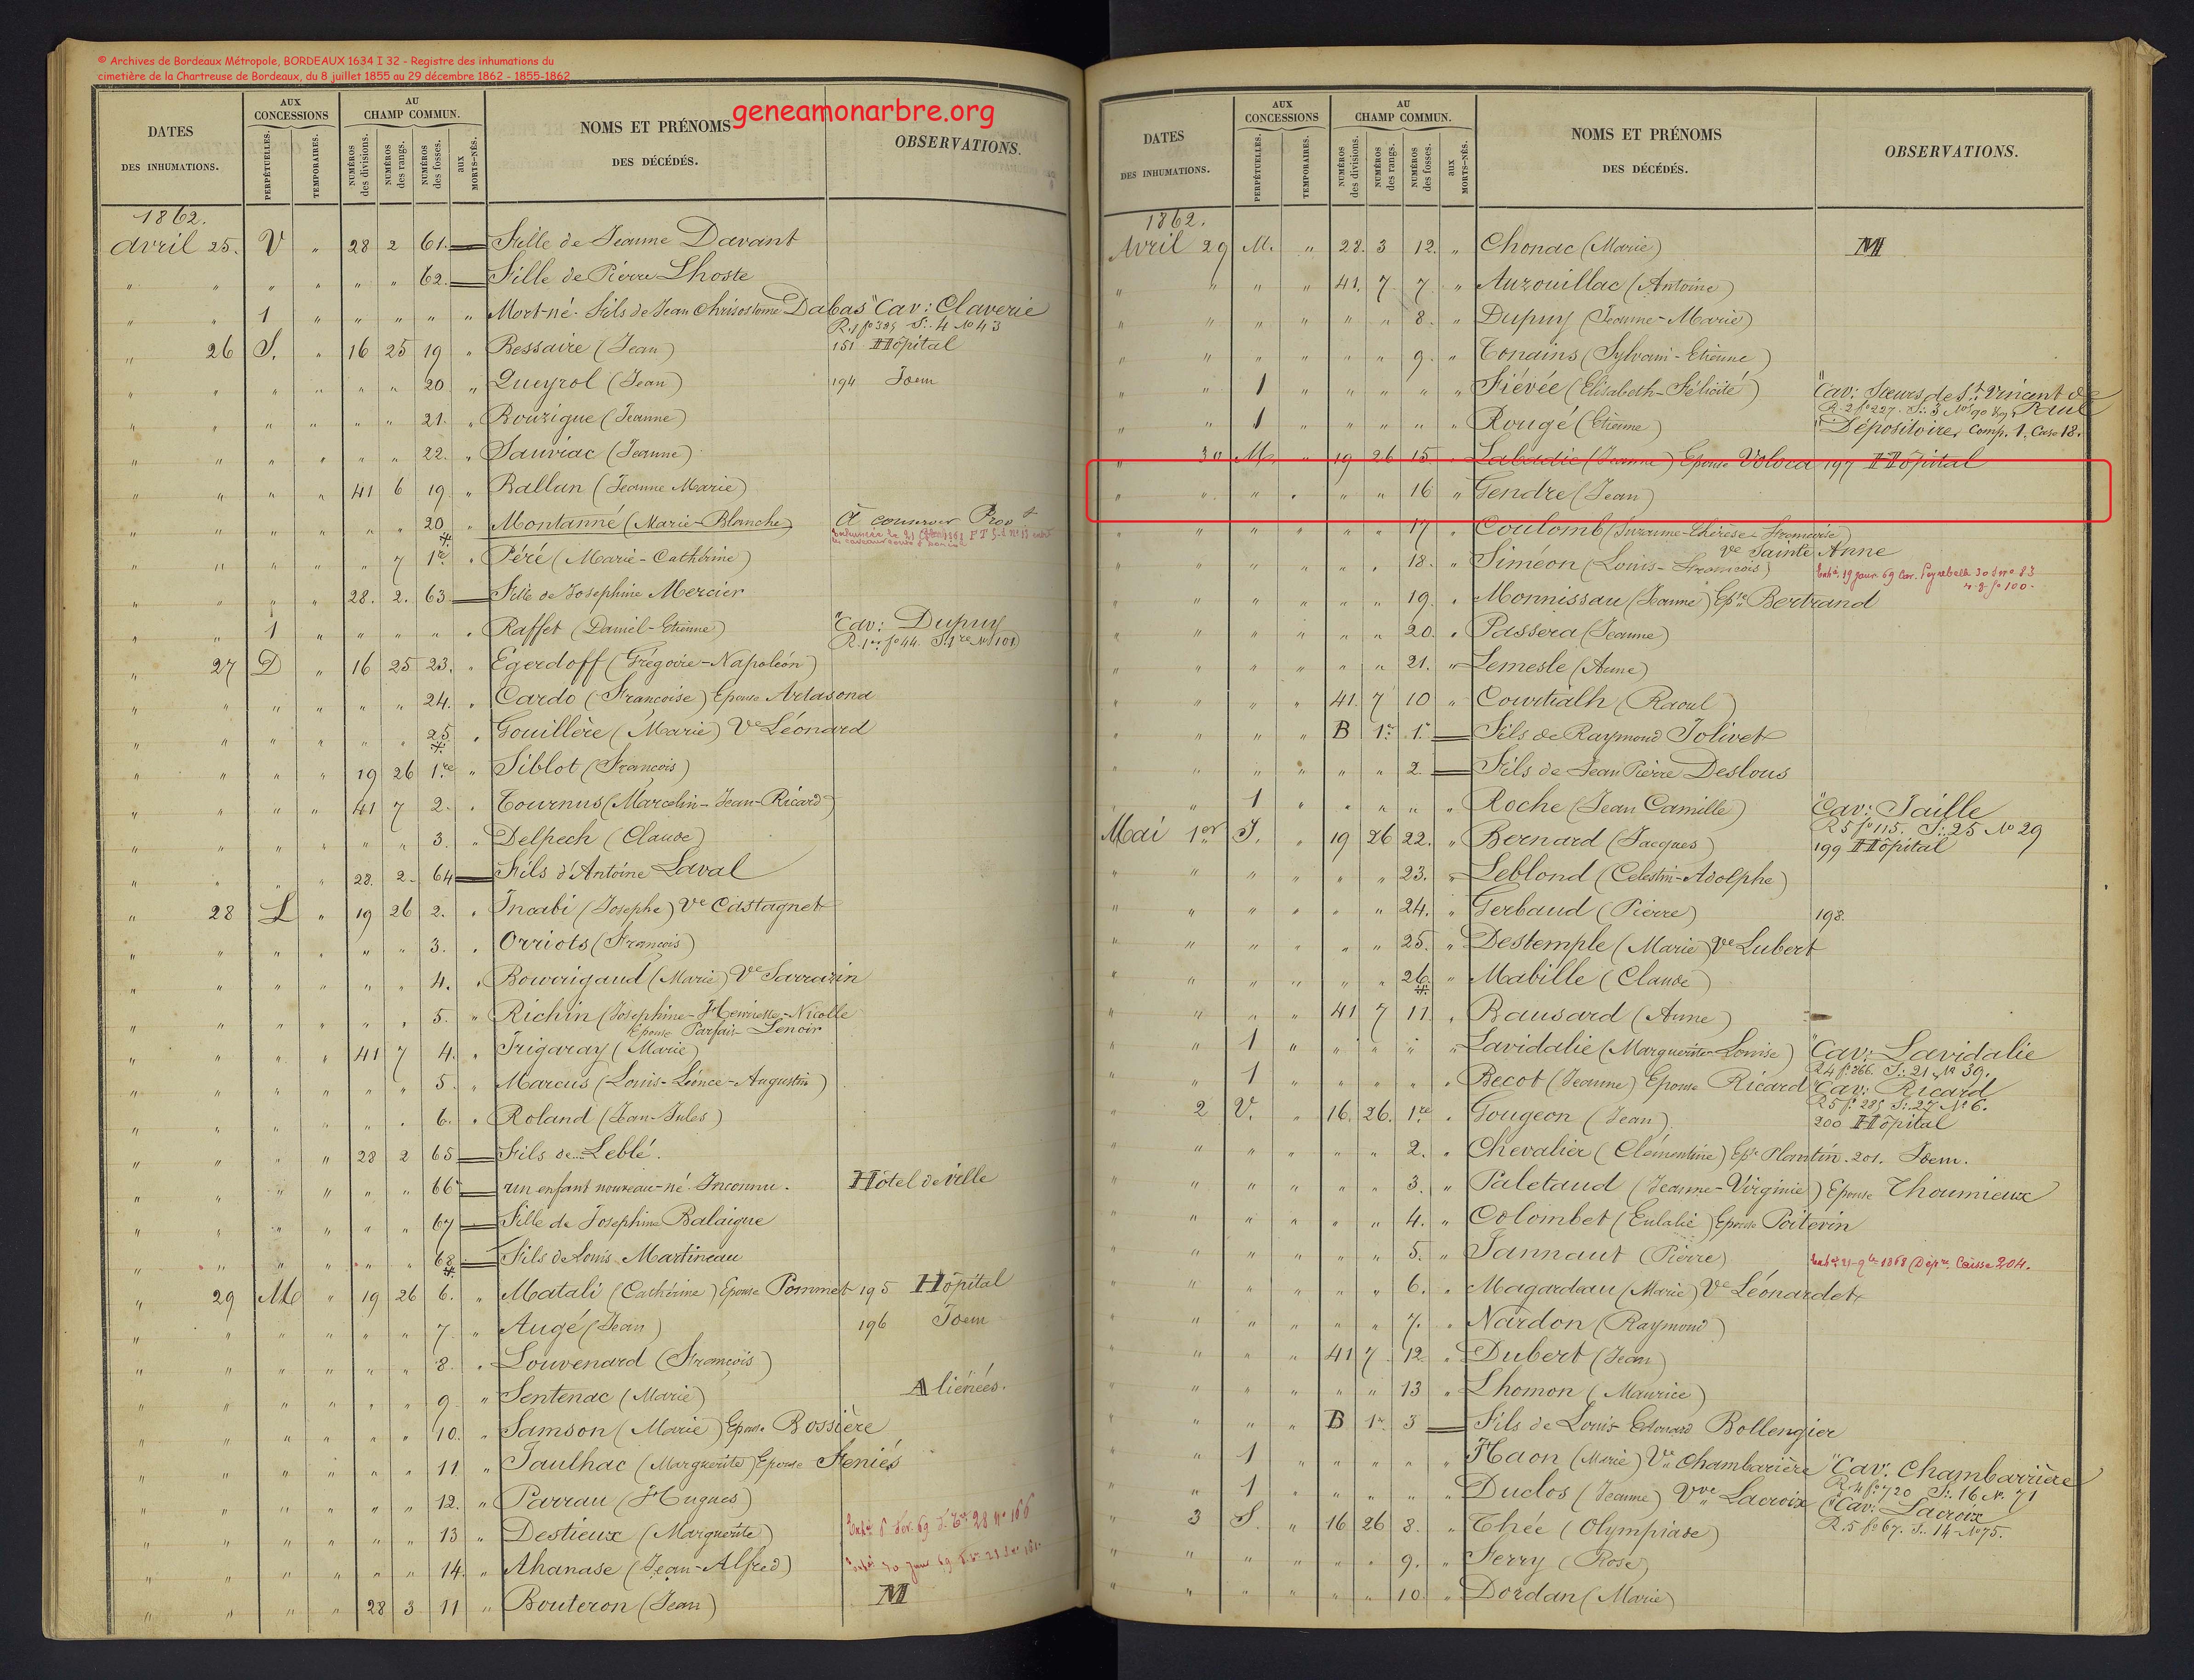 © Archives de Bordeaux Métropole, BORDEAUX 1634 I 32 - Registre des inhumations du
cimetière de la Chartreuse de Bordeaux, du 8 juillet 1855 au 29 décembre 1862 - 1855-1862
geneamonarbre.org
DATES DES INHUMATIONS.
AUX CONCESSIONS
PERPÉTUELLES.
TEMPORAIRES.
AU CHAMP COMMUN.
NUMÉROS des divisions.
NUMÉROS des rangs.
NUMÉROS des fosses.
aux MORTS-NÉS.
NOMS ET PRÉNOMS DES DÉCÉDÉS.
OBSERVATIONS.
1862.
Avril 25. V " 28 2 61. Fille de Jeanne Davant
" " " " " " 62. Fille de Pierre Lhoste
" " 1 " " " " " Mort-né. Fils de Jean Chrisostome Dabas "Cav: Claverie
R.1 fo 385 S: 4 No 43
" 26 S. " 16 25 19 " Bessaire (Jean) 151 Hôpital
" " " " " " 20 " Queyrol (Jean) 194 Idem
" " " " " " 21. " Bouzigue (Jeanne)
" " " " " " 22. " Sauviac (Jeanne)
" " " " 41 6 19 " Ballan (Jeanne Marie)
" " " " " " 20 " Montanné (Marie-Blanche) à conserver
" " " " " 7 1re " Péré (Marie-Cathérine)
" " " " 28. 2. 63 Fille de Josephine Mercier
" " 1 " " " " " Raffet (Daniel-Etienne) "Cav: Dupuy
R.1er fo 44. S 1re No 101
" 27 D " 16 25 23. " Egerdoff (Grégoire-Napoléon)
" " " " " " 24. " Cardo (Françoise) Epouse Artasona
" " " " " " 25 " Gouillère (Marie) Ve Léonard
" " " " 19 26 1re " Siblot (François)
" " " " 41 7 2. " Tournus (Marcelin-Jean-Ricard)
" " " " " " 3. " Delpech (Claude)
" " " " 28. 2. 64 Fils d'Antoine Laval
" 28 L " 19 26 2. " Incabi (Josephe) Ve Castagnet
" " " " " " 3. " Orriots (François)
" " " " " " 4. " Bourrigaud (Marie) Ve Sarrazin
" " " " " " 5. " Richin (Josephine-Henriette-Nicolle
Epouse Parfait Lenoir
" " " " 41 7 4. " Trigaray (Marie)
" " " " " " 5. " Marcus (Louis-Léonce-Augustin)
" " " " " " 6. " Roland (Jean-Jules)
" " " " 28 2 65 Fils de... Leblé.
" " " " " " 66 un enfant nouveau-né Inconnu. Hôtel de ville
" " " " " " 67 Fille de Josephine Balaigue
" " " " " " 68 Fils de Louis Martineau
" 29 M " 19 26 6. " Matali (Cathérine) Epouse Pommet 195 Hôpital
" " " " " " 7. " Augé (Jean) 196 Idem
" " " " " " 8. " Louvenard (François)
" " " " " " 9 " Sentenac (Marie) Aliénées.
" " " " " " 10. " Samson (Marie) Epouse Bossière
" " " " " " 11 " Taulhac (Marguerite) Epouse Féniés
" " " " " " 12. " Parrau (Hugues)
" " " " " " 13 " Destieux (Marguerite)
" " " " " " 14. " Ahanase (Jean-Alfred)
" " " " 28 3 11 " Bouteron (Jean) M
DATES DES INHUMATIONS.
AUX CONCESSIONS
PERPÉTUELLES.
TEMPORAIRES.
AU CHAMP COMMUN.
NUMÉROS des divisions.
NUMÉROS des rangs.
NUMÉROS des fosses.
aux MORTS-NÉS.
NOMS ET PRÉNOMS DES DÉCÉDÉS.
OBSERVATIONS.
1862.
Avril 29 M. " 28. 3 12. " Chonac (Marie) M
" " " " 41. 7 7 " Auzouillac (Antoine)
" " " " " " 8. " Dupuy (Jeanne-Marie)
" " " " " " 9. " Tonains (Sylvain-Etienne)
" " 1 " " " " " Fiévée (Elisabeth-Félicité) "Cav: Sœurs de St Vincent de Paul
R.2 fo 227. S: 3
" " 1 " " " " " Rougé (Etienne) "Dépositoire, Comp. 1. Case 18.
" 30 M. " 19 26 15. " Labadie (Jeanne) Epouse Voloca 197 Hôpital
" " " " " " 16 " Gendre (Jean)
" " " " " " 17 " Coulomb (Suzanne-Thérèse-Françoise)
Ve Sainte Anne
" " " " " " 18. " Siméon (Louis-François) Exhé. 19 janv. 69 Cav. Peyrabelle 30 S no 83
r. 8 fo 100.
" " " " " " 19. " Monnissau (Jeanne) Epse Bertrand
" " " " " " 20. " Passera (Jeanne)
" " " " " " 21. " Lemesle (Anne)
" " " " 41. 7 10 " Courtialh (Raoul)
" " " " B 1r. 1. Fils de Raymond Jolivet
" " " " " " 2 Fils de Jean Pierre Deslous
" " 1 " " " " " Roche (Jean Camille) "Cav: Taille
R 5 fo 115. S: 25 No 29
Mai 1er J. " 19 26 22. " Bernard (Jacques) 199 Hôpital
" " " " " " 23. " Leblond (Celestin-Adolphe)
" " " " " " 24. " Gerbaud (Pierre) 198.
" " " " " " 25. " Destemple (Marie) Ve Lubert
" " " " " " 26. " Mabille (Claude)
" " " " 41 7 11. " Bausard (Anne)
" " 1 " " " " " Lavidalie (Marguerite-Louise) "Cav: Lavidalie
R4 fo 366. S: 21 No 39.
" " 1 " " " " " Becot (Jeanne) Epouse Ricard "Cav: Ricard
R 5 fo 285 S: 27 No 6.
" 2 V. " 16. 26. 1re " Gougeon (Jean) 200 Hôpital
" " " " " " 2. " Chevalier (Clémentine) Epse Plantin. 201. Idem.
" " " " " " 3. " Paletaud (Jeanne-Virginie) Epouse Thoumieux
" " " " " " 4. " Colombet (Eulalie) Epouse Poitevin
" " " " " " 5. " Jannaut (Pierre) 1868 Dépre. Caisse 204.
" " " " " " 6. " Magardeau (Marie) Ve Léonardet
" " " " " " 7. " Nardon (Raymond)
" " " " 41 7 12. " Dubert (Jean)
" " " " " " 13 " Lhomon (Maurice)
" " " " B 1r 3 Fils de Louis-Edouard Bollengier
" " 1 " " " " " Haon (Marie) Ve Chambarière "Cav: Chambarrière
R.4 fo 720 S: 16 No. 71
" " 1 " " " " " Duclos (Jeanne) Vve Lacroix "Cav: Lacroix
R.5 fo 67. S. 14 No 75.
" 3 S. " 16 26 8. " Thée (Olympiade)
" " " " " " 9. " Ferry (Rose)
" " " " " " 10. " Dordan (Marie)